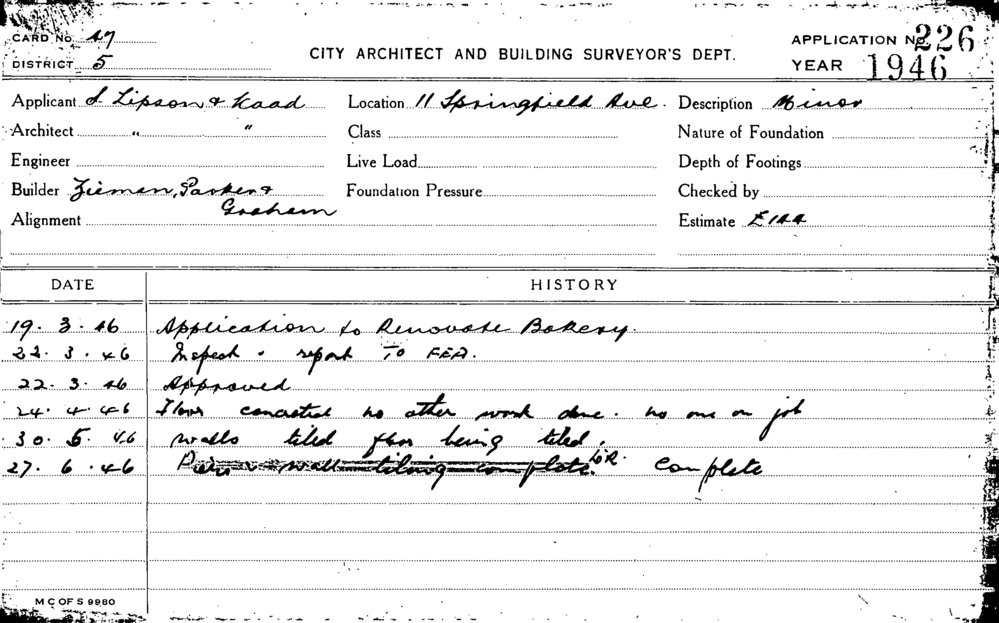 CARD No. 47
DISTRICT 5
CITY ARCHITECT AND BUILDING SURVEYOR'S DEPT.
APPLICATION No. 226
YEAR 1946
Applicant S. Lipson & Kaad Location 11 Springfield Ave. Description Minor
Architect " " Class Nature of Foundation
Engineer Live Load Depth of Footings
Builder Zieman, Parker & Graham Foundation Pressure Checked by
Alignment Estimate £144
DATE HISTORY
19. 3. 46 Application to Renovate Bakery.
22. 3. 46 Inspect & report TO FEA.
22. 3. 46 Approved
24. 4. 46 Floor concreted no other work done. no one on job
30. 5. 46 walls tiled floor being tiled.
27. 6. 46 wall tiling complete. Complete
M C OF S 9980